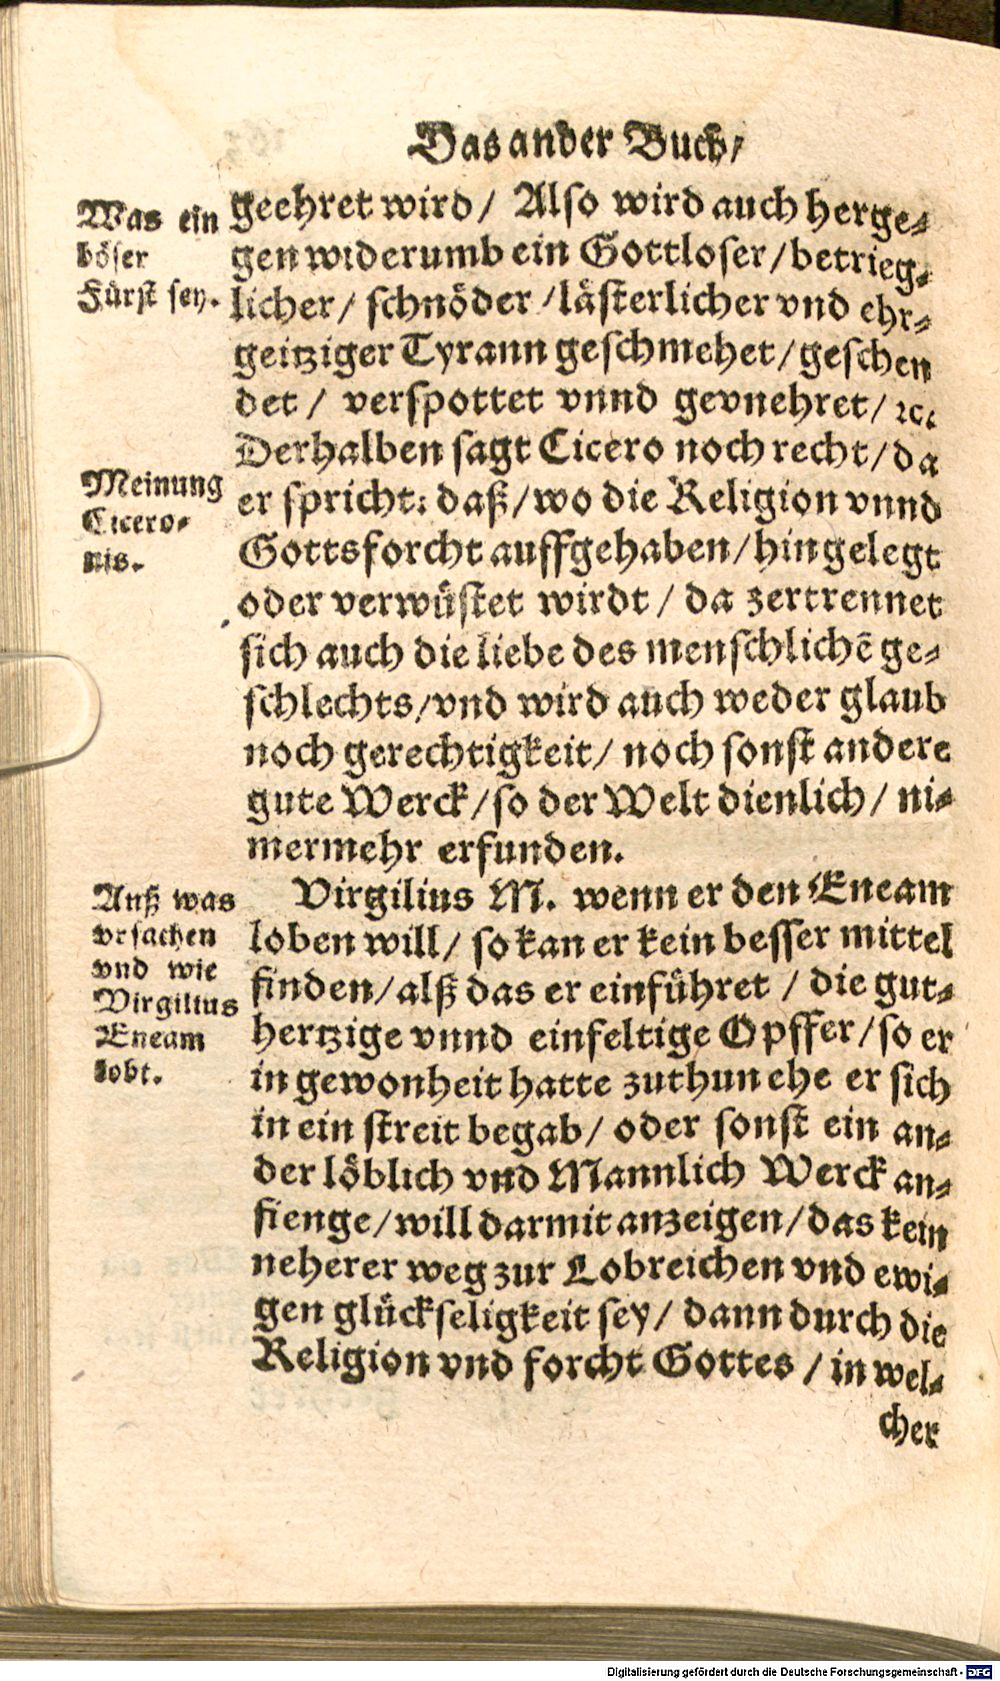 Das ander Buch/
Was ein
böser
Fürst sey.
geehret wird/ Also wird auch herge-
gen widerumb ein Gottloser/betrieg-
licher/ schnöder /lästerlicher vnd ehr-
geitziger Tyrann geschmehet/geschen
det/ verspottet vnnd gevnehret/ ꝛc.
Derhalben sagt Cicero noch recht/da
Meinung
Cicero-
nis.
er spricht: daß/wo die Religion vnnd
Gottsforcht auffgehaben/hingelegt
oder verwüstet wirdt/ da zertrennet
sich auch die liebe des menschlichẽ ge-
schlechts/vnd wird auch weder glaub
noch gerechtigkeit/ noch sonst andere
gute Werck/so der Welt dienlich/ ni-
mermehr erfunden.
Auß was
vrsachen
vnd wie
Virgilius
Eneam
lobt.
Virgilius M. wenn er den Eneam
loben will/ so kan er kein besser mittel
finden/alß das er einführet / die gut-
hertzige vnnd einfeltige Opffer/so er
in gewonheit hatte zuthun ehe er sich
in ein streit begab/ oder sonst ein an-
der löblich vnd Mannlich Werck an-
fienge/will darmit anzeigen/das kein
neherer weg zur Lobreichen vnd ewi-
gen glückseligkeit sey/ dann durch die
Religion vnd forcht Gottes /in wel-
cher
Digitalisierung gefördert durch die Deutsche Forschungsgemeinschaft - DFG